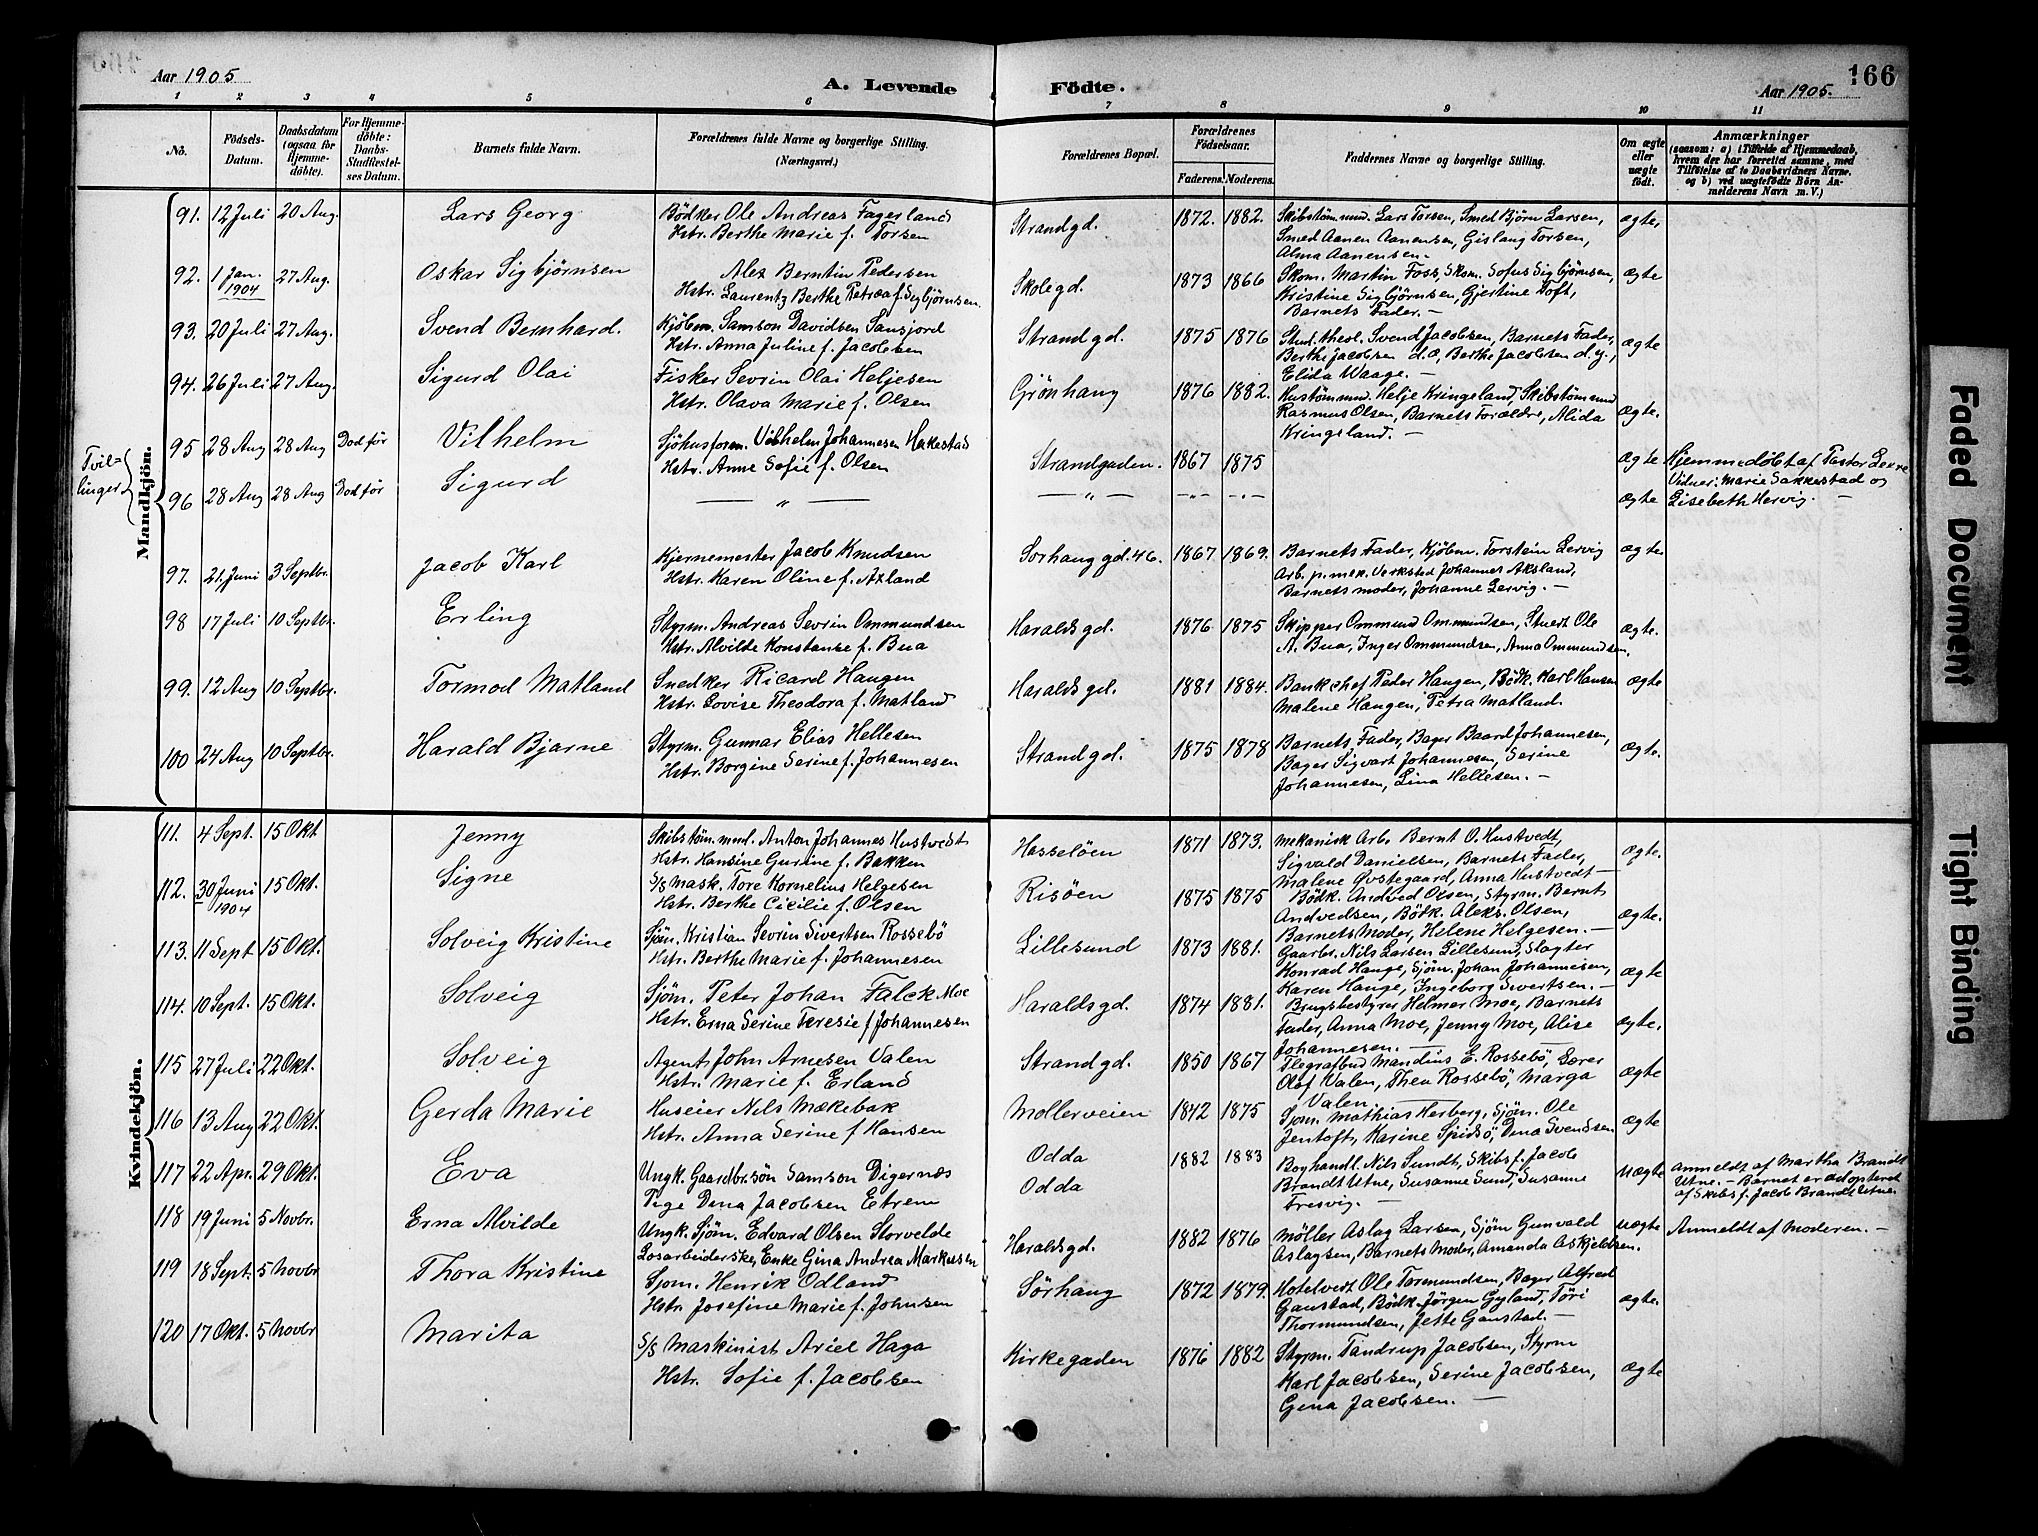 Aar 1905
A. Levende
Födte.
Aar 1905.
166
1 2 3 4 5 6 7 8 9 10 11
No.
Födsels-
Datum.
Daabsdatum
(ogsaa for
Hjemme-
döbte).
For Hjemme-
döbte:
Daabs-
Stadfæstel-
ses Datum.
Barnets fulde Navn.
Forældrenes fulde Navne og borgerlige Stilling.
(Næringsvei.)
Forældrenes Bopæl.
Forældrenes
Födselsaar.
Faderens. Moderens.
Faddernes Navne og borgerlige Stilling.
Om ægte
eller
uægte
födt.
Anmærkninger
(saasom: a) i Tilfælde af Hjemmedaab,
hvem der har forrettet samme, med
Tilföielse af to Daabsvidners Navne,
og b) ved uægtefödte Börn An-
melderens Navn m. V.)
Mandkjön.
91. 12 Juli 20 Aug. Lars Georg
Bödker Ole Andreas Fagerland
Hstr. Berthe Marie f. Torsen
Strandgd. 1872. 1882.
Skibstöm.mnd. Lars Torsen, Smed Björn Larsen,
Smed Aanen Aanensen, Gislaug Torsen,
Alma Aanensen.—
ægte,
92. 1 Jan. 1904 27 Aug. Oskar Sigbjörnsen
Alex Berntin Pedersen
Hstr. Laurentz Berthe Petrea f. Sigbjörnsen.
Skolegd. 1873 1866
Skom. Martin Foss, Skom. Sofus Sigbjörnsen,
Kristine Sigbjörnsen, Gjertine Toft,
Barnets Fader.—
ægte
93. 20 Juli 27 Aug. Svend Bernhard.
Kjöbm. Samson Davidsen Sansjord
Hstr. Anna Juline f. Jacobsen
Strandgd. 1875 1876
Stud. theol. Svend Jacobsen, Barnets Fader,
Berthe Jacobsen d.æ, Berthe Jacobsen d.y.,
Elida Waage.—
ægte
94. 26 Juli 27 Aug. Sigurd Olai
Fisker Sevrin Olai Heljesen
Hstr. Olava Marie f. Olsen
Grönhaug 1876 1882.
Hustöm.mnd. Helje Kringeland, Skibstöm.mnd
Rasmus Olsen, Barnets Forældre, Alida
Kringeland.—
ægte.
Tvil-
linger
95 28 Aug 28 Aug Död för Vilhelm
Sjöhusform. Vilhelm Johannesen Hakestad
Hstr. Anne Sofie f. Olsen
Strandgaden. 1867 1875
ægte
Hjemmedöbt af Pastor Lexe
Vidner: Marie Sakkestad og
Lisebeth Hervig.—
96 28 Aug 28 Aug Död för Sigurd
— „ —
— „ — —„— —„—
ægte
97. 21. Juni 3 Septbr. Jacob Karl
Kjernemester Jacob Knudsen
Hstr. Karen Oline f. Axland
Sorhauggd. 46. 1867 1869.
Barnets Fader, Kjöbm. Torstein Lervig
Arb. p. mek. Verksted Johannes Aksland,
Barnets moder, Johanne Lervig.—
ægte
98 17 Juli 10 Septbr. Erling
Styrm. Andreas Sevrin Ommundsen
Hstr. Alvilde Konstanse f. Bua
Haraldsgd. 1876 1875
Skipper Ommund Ommundsen, Stuert Ole
A. Bua, Inger Ommundsen, Anna Ommundsen.
ægte.
99. 12 Aug 10 Septbr. Tormod Matland
Snedker Ricard Haugen
Hstr. Lovise Theodora f. Matland
Haraldsgd. 1881 1884.
Bankchef Peder Haugen, Bödk. Karl Hansen
Malene Haugen, Petra Matland.
ægte
100 24 Aug 10 Septbr. Harald Bjarne
Styrm. Gunnar Elias Hellesen
Hstr. Borgine Serine f. Johannesen
Strandgd. 1875 1878
Barnets Fader, Bager Baard Johannesen,
Bager Sigvart Johannesen, Serine
Johannesen, Lina Hellesen.—
ægte.
Kvindekjön.
111. 4 Sept. 15 Okt Jenny
Skibstöm.mnd. Anton Johannes Hustvedt
Hstr. Hansine Gurine f. Bakken
Hasselöen 1871 1873.
Mekanisk Arb. Bernt O. Hustvedt,
Sigvald Danielsen, Barnets Fader,
Malene Östegaard, Anna Hustvedt—
ægte.
112. 30 Juni 1904 15 Okt. Signe
S/S Mask. Tore Kornelius Helgesen
Hstr. Berthe Cicilie f. Olsen
Risöen 1875 1875
Bödk. Andved Olsen, Styrm. Bernt
Andvedsen, Bödk. Aleks. Olsen,
Barnets Moder, Helene Helgesen.—
ægte.
113. 11 Sept 15 Okt. Solveig Kristine
Sjöm. Kristian Sevrin Sivertsen Rossebö
Hstr. Berthe Marie f. Johannesen
Lillesund 1873 1881.
Gaarbr. Nils Larsen Lillesund, Slagter
Konrad Hauge, Sjöm. Johan Johannesen,
Karen Hauge, Ingeborg Sivertsen.—
ægte
114. 10 Sept. 15 Okt. Solveig
Sjöm. Peter Johan Falck Moe
Hstr. Erna Serine Teresie f. Johannesen
Haraldsgd. 1874 1881.
Brugsbestyrer Helmer Moe, Barnets
Fader, Anna Moe, Jenny Moe, Alise
Johannesen.—
ægte.
115 27 Juli 22 Okt. Solveig
Agent John Arnesen Valen
Hstr. Marie f. Erland
Strandgd. 1850 1867
Tlegrafbud Mandius E. Rossebö, Lærer
Olaf Valen, Thea Rossebö, Marga
Valen.—
ægte
116 13 Aug 22 Okt. Gerda Marie
Huseier Nils Mækebak
Hstr. Anna Serine f Hansen
Möllerveien 1842 1875
Sjöm. Mathias Herberg, Sjöm. Ole
Jentoft, Karine Spidsö, Dina Svendsen
ægte
117 22 Apr. 29 Okt. Eva
Ungk. Gaardbr.sön Samson Digernæs
Pige Dina Jacobsen Eitrem
Odda
Odda
1882 1883
Boghandl. Nils Sundt, Skibsf. Jacob
Brandt Utne, Susanne Sund, Susanne
Tresvig.—
uægte
Anmeldt af Martha Brandt
Utne.— Barnet er adopteret
af Skibsf. Jacob Brandt Utne.
118 19 Juni 5 Novbr. Erna Alvilde
Ungk. Sjöm. Edvard Olsen Storvelde
Losarbeiderske, Enke Gina Andrea Markussen
Haraldsgd. 1882 1876
Möller Aslag Larsen, Sjöm Gunvald
Aslagsen, Barnets Moder, Amanda Askjeldsen.
uægte
Anmeldt af Moderen.—
119 18 Sept. 5 Novbr Thora Kristine
Sjom. Henrik Odland
Hstr. Josefine Marie f. Johnsen
Sörhaug 1872 1879.
Hotelvert Ole Tormundsen, Bager Alfred
Gaustad, Bödk. Jörgen Gyland, Töri
Thormundsen, Jette Gaustad.—
ægte.
120 17 Okt. 5 Novbr Marita
S/S Maskinist Ariel Haga
Hstr. Sofie f. Jacobsen
Kirkegaden 1876 1882
Styrm. Tandrup Jacobsen, Styrm
Karl Jacobsen, Serine Jacobsen,
Gina Jacobsen.—
ægte
Faded Document
Tight Binding